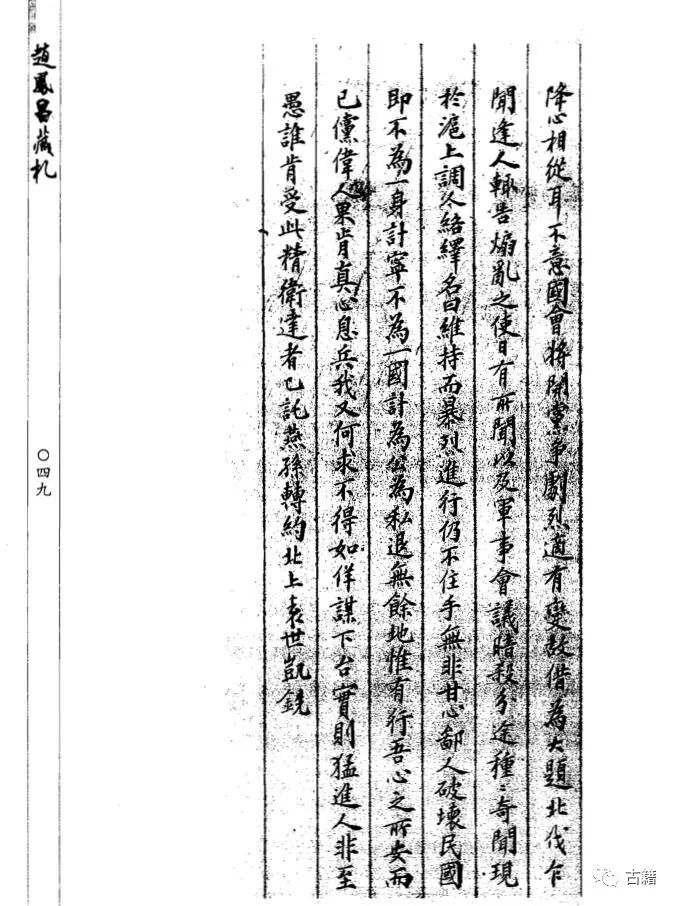 降心相從耳不意國會將開黨爭劇烈適有變故借為大題北伐乍
聞逢人輒告煽亂之使日有所聞以及軍事會議暗殺分途種〻奇聞現
於滬上調人絡繹名曰維持而暴烈進行仍不住手無非甘心鄙人破壞民國
即不為一身計寧不為一國計為公為私退無餘地惟有行吾心之所安而
已儻偉人果肯真心息兵我又何求不得如佯謀下台實則猛進人非至
愚誰肯受此精衛達者已託燕孫轉約北上袁世凱銑
趙鳳昌藏札
〇四九
古籍